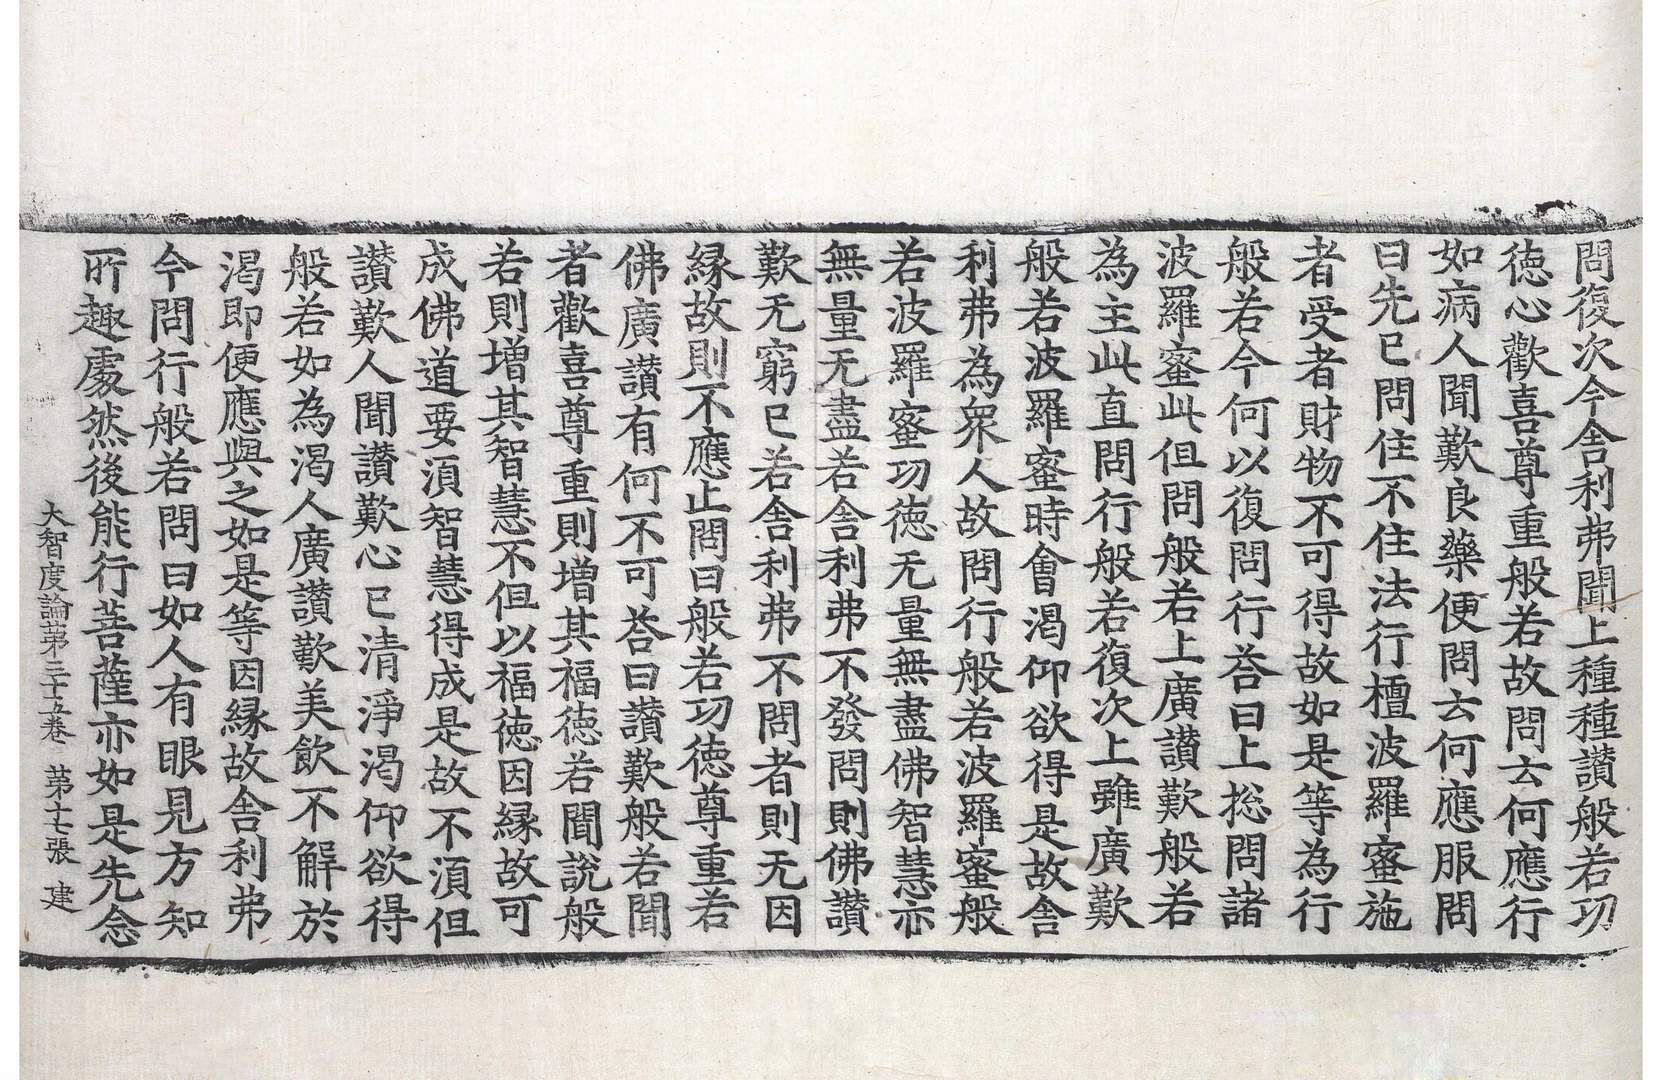 問復次今舎利弗聞上種種讃般若功
徳心歡喜尊重般若故問云何應行
如病人聞歎良藥便問云何應服問
曰先已問住不住法行檀波羅蜜施
者受者財物不可得故如是等為行
般若今何以復問行荅曰上捴問諸
波羅蜜此但問般若上廣讃歎般若
為主此直問行般若復次上雖廣歎
般若波羅蜜時會渇仰欲得是故舎
利弗為衆人故問行般若波羅蜜般
若波羅蜜功徳无量無盡佛智慧亦
無量无盡若舎利弗不發問則佛讃
歎无窮已若舎利弗不問者則无因
縁故則不應止問曰般若功徳尊重若
佛廣讃有何不可荅曰讃歎般若聞
者歡喜尊重則増其福徳若聞說般
若則増其智慧不但以福徳因縁故可
成佛道要湏智慧得成是故不湏但
讃歎人聞讃歎心已清淨渇仰欲得
般若如為渇人廣讃歎美飲不解於
渇即便應與之如是等因縁故舎利弗
今問行般若問曰如人有眼見方知
所趣處然後能行菩薩亦如是先念
大智度論第三十五巻　第十七張　建